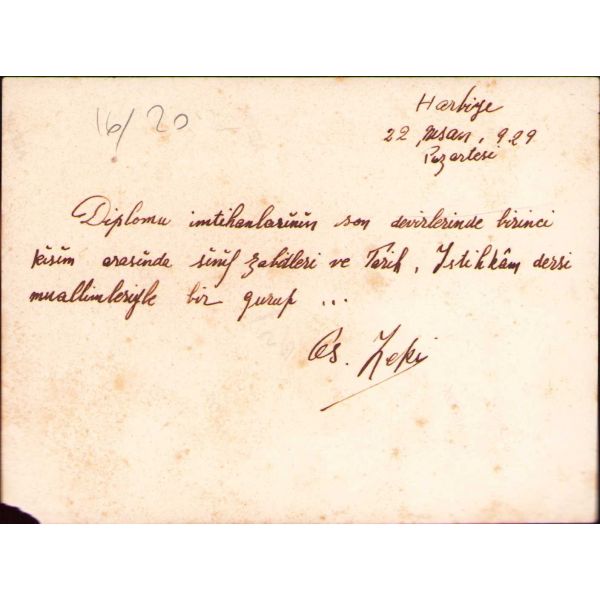 16/20
Harbiye
22 Nisan, 929
Pazartesi
Diploma imtihanlarïnïn son devirlerinde birinci
kïsïm arasïnda sïnïf zabitleri ve Tarih, Istihkâm dersi
muallimleriyle bir gurup ...
Os. Zeki